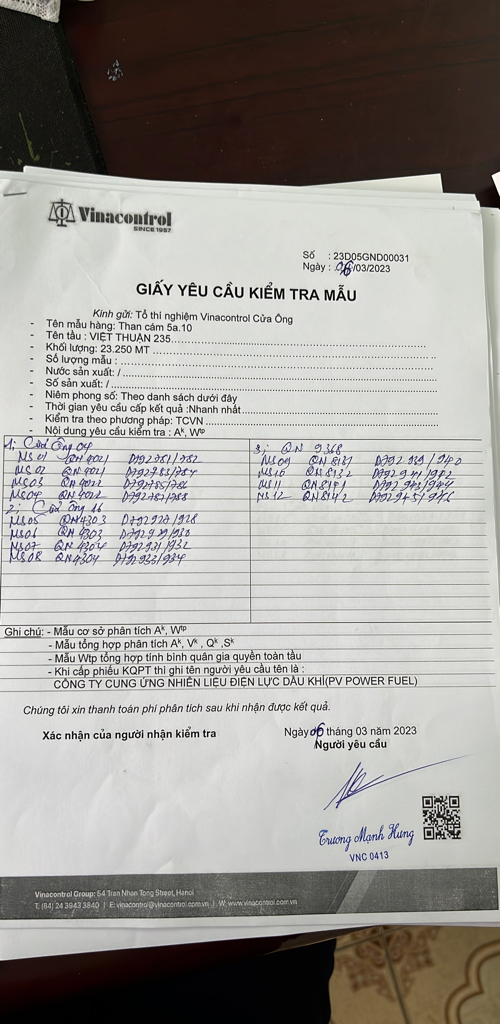 Vinacontrol
SINCE 1957
Số : 23D05GND00031
Ngày : 06/03/2023
GIẤY YÊU CẦU KIỂM TRA MẪU
Kính gửi: Tổ thí nghiệm Vinacontrol Cửa Ông
- Tên mẫu hàng: Than cám 5a.10
- Tên tàu : VIỆT THUẬN 235
- Khối lượng: 23.250 MT
- Số lượng mẫu :
- Nước sản xuất: /
- Số sản xuất: /
- Niêm phong số: Theo danh sách dưới đây
- Thời gian yêu cầu cấp kết quả :Nhanh nhất
- Kiểm tra theo phương pháp: TCVN
- Nội dung yêu cầu kiểm tra : Aᵏ, Wᵗᵖ
1; Cửa Ông 04
MS01 QN 4021 D792781/782
MS02 QN4021 D792783/784
MS03 QN4022 D792785/786
MS04 QN4022 D792787/788
2; Cửa Ông 16
MS05 QN4303 D792927/928
MS06 QN4303 D792929/930
MS07 QN4304 D792931/932
MS08 QN4304 D792933/934
3; QN 9368
MS09 QN8131 D792939/940
MS10 QN8132 D792941/942
MS11 QN8141 D792943/944
MS12 QN8142 D792945/946
Ghi chú: - Mẫu cơ sở phân tích Aᵏ, Wᵗᵖ
- Mẫu tổng hợp phân tích Aᵏ, Vᵏ , Qᵏ ,Sᵏ
- Mẫu Wtp tổng hợp tính bình quân gia quyền toàn tàu
- Khi cấp phiếu KQPT thì ghi tên người yêu cầu tên là :
CÔNG TY CUNG ỨNG NHIÊN LIỆU ĐIỆN LỰC DẦU KHÍ(PV POWER FUEL)
Chúng tôi xin thanh toán phí phân tích sau khi nhận được kết quả.
Xác nhận của người nhận kiểm tra
Ngày 06 tháng 03 năm 2023
Người yêu cầu
Trương Mạnh Hưng
VNC 0413
Vinacontrol Group: 54 Tran Nhan Tong Street, Hanoi
T. (84) 24 3943 3840 | E: vinacontrol@vinacontrol.com.vn | W: www.vinacontrol.com.vn